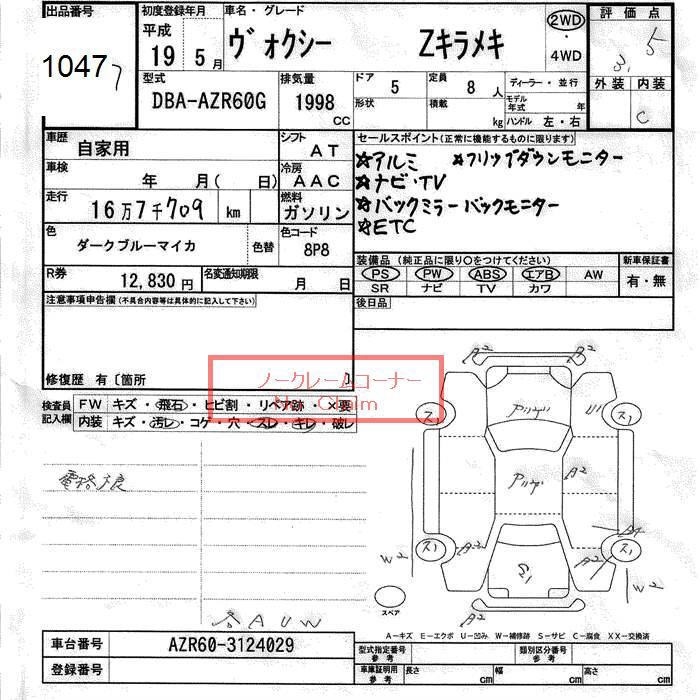 出品番号
1047
初度登録年月 平成 19 5月
車名・グレード
ヴォクシー Zキラメキ
2WD
・
4WD
評価点
3.5
外装 内装
C
型式
DBA-AZR60G
排気量
1998
CC
ドア 5
形状
定員 8 人
積載 kg
ディーラー・並行
モデル年式 年
ハンドル 左・右
車歴 自家用
シフト AT
車検 年 月( 日)
冷房 AAC
走行 16万7千709 km
燃料 ガソリン
色 ダークブルーマイカ 色替
色コード 8P8
R券 12,830円
名変通知期限 月 日
セールスポイント(正常に機能するものに限ります)
☆アルミ ☆フリップダウンモニター
☆ナビ・TV
☆バックミラーバックモニター
☆ETC
装備品(純正品に限り○をつけてください)
PS PW ABS エアB AW
SR ナビ TV カワ
新車保証書
有・無
後日品
注意事項申告欄(不具合内容等は具体的に記入して下さい)
修復歴 有〔箇所 〕
ノークレームコーナー
No Claim
検査員記入欄
FW キズ・飛石・ヒビ割・リペア跡 ×要
内装 キズ・汚レ・コゲ・穴・スレ・キレ・破レ
A2
A2
ス1
U1
ス1
A2
A2
ス1
A2
ス1
W2
A2
W2
A2
スペア
A-キズ E-エクボ U-凹み W-補修跡 S-サビ C-腐食 XX-交換済
車台番号 AZR60-3124029
登録番号
型式指定番号 参考
類別区分番号 参考
車庫証明用 参考 長さ cm 幅 cm 高さ cm